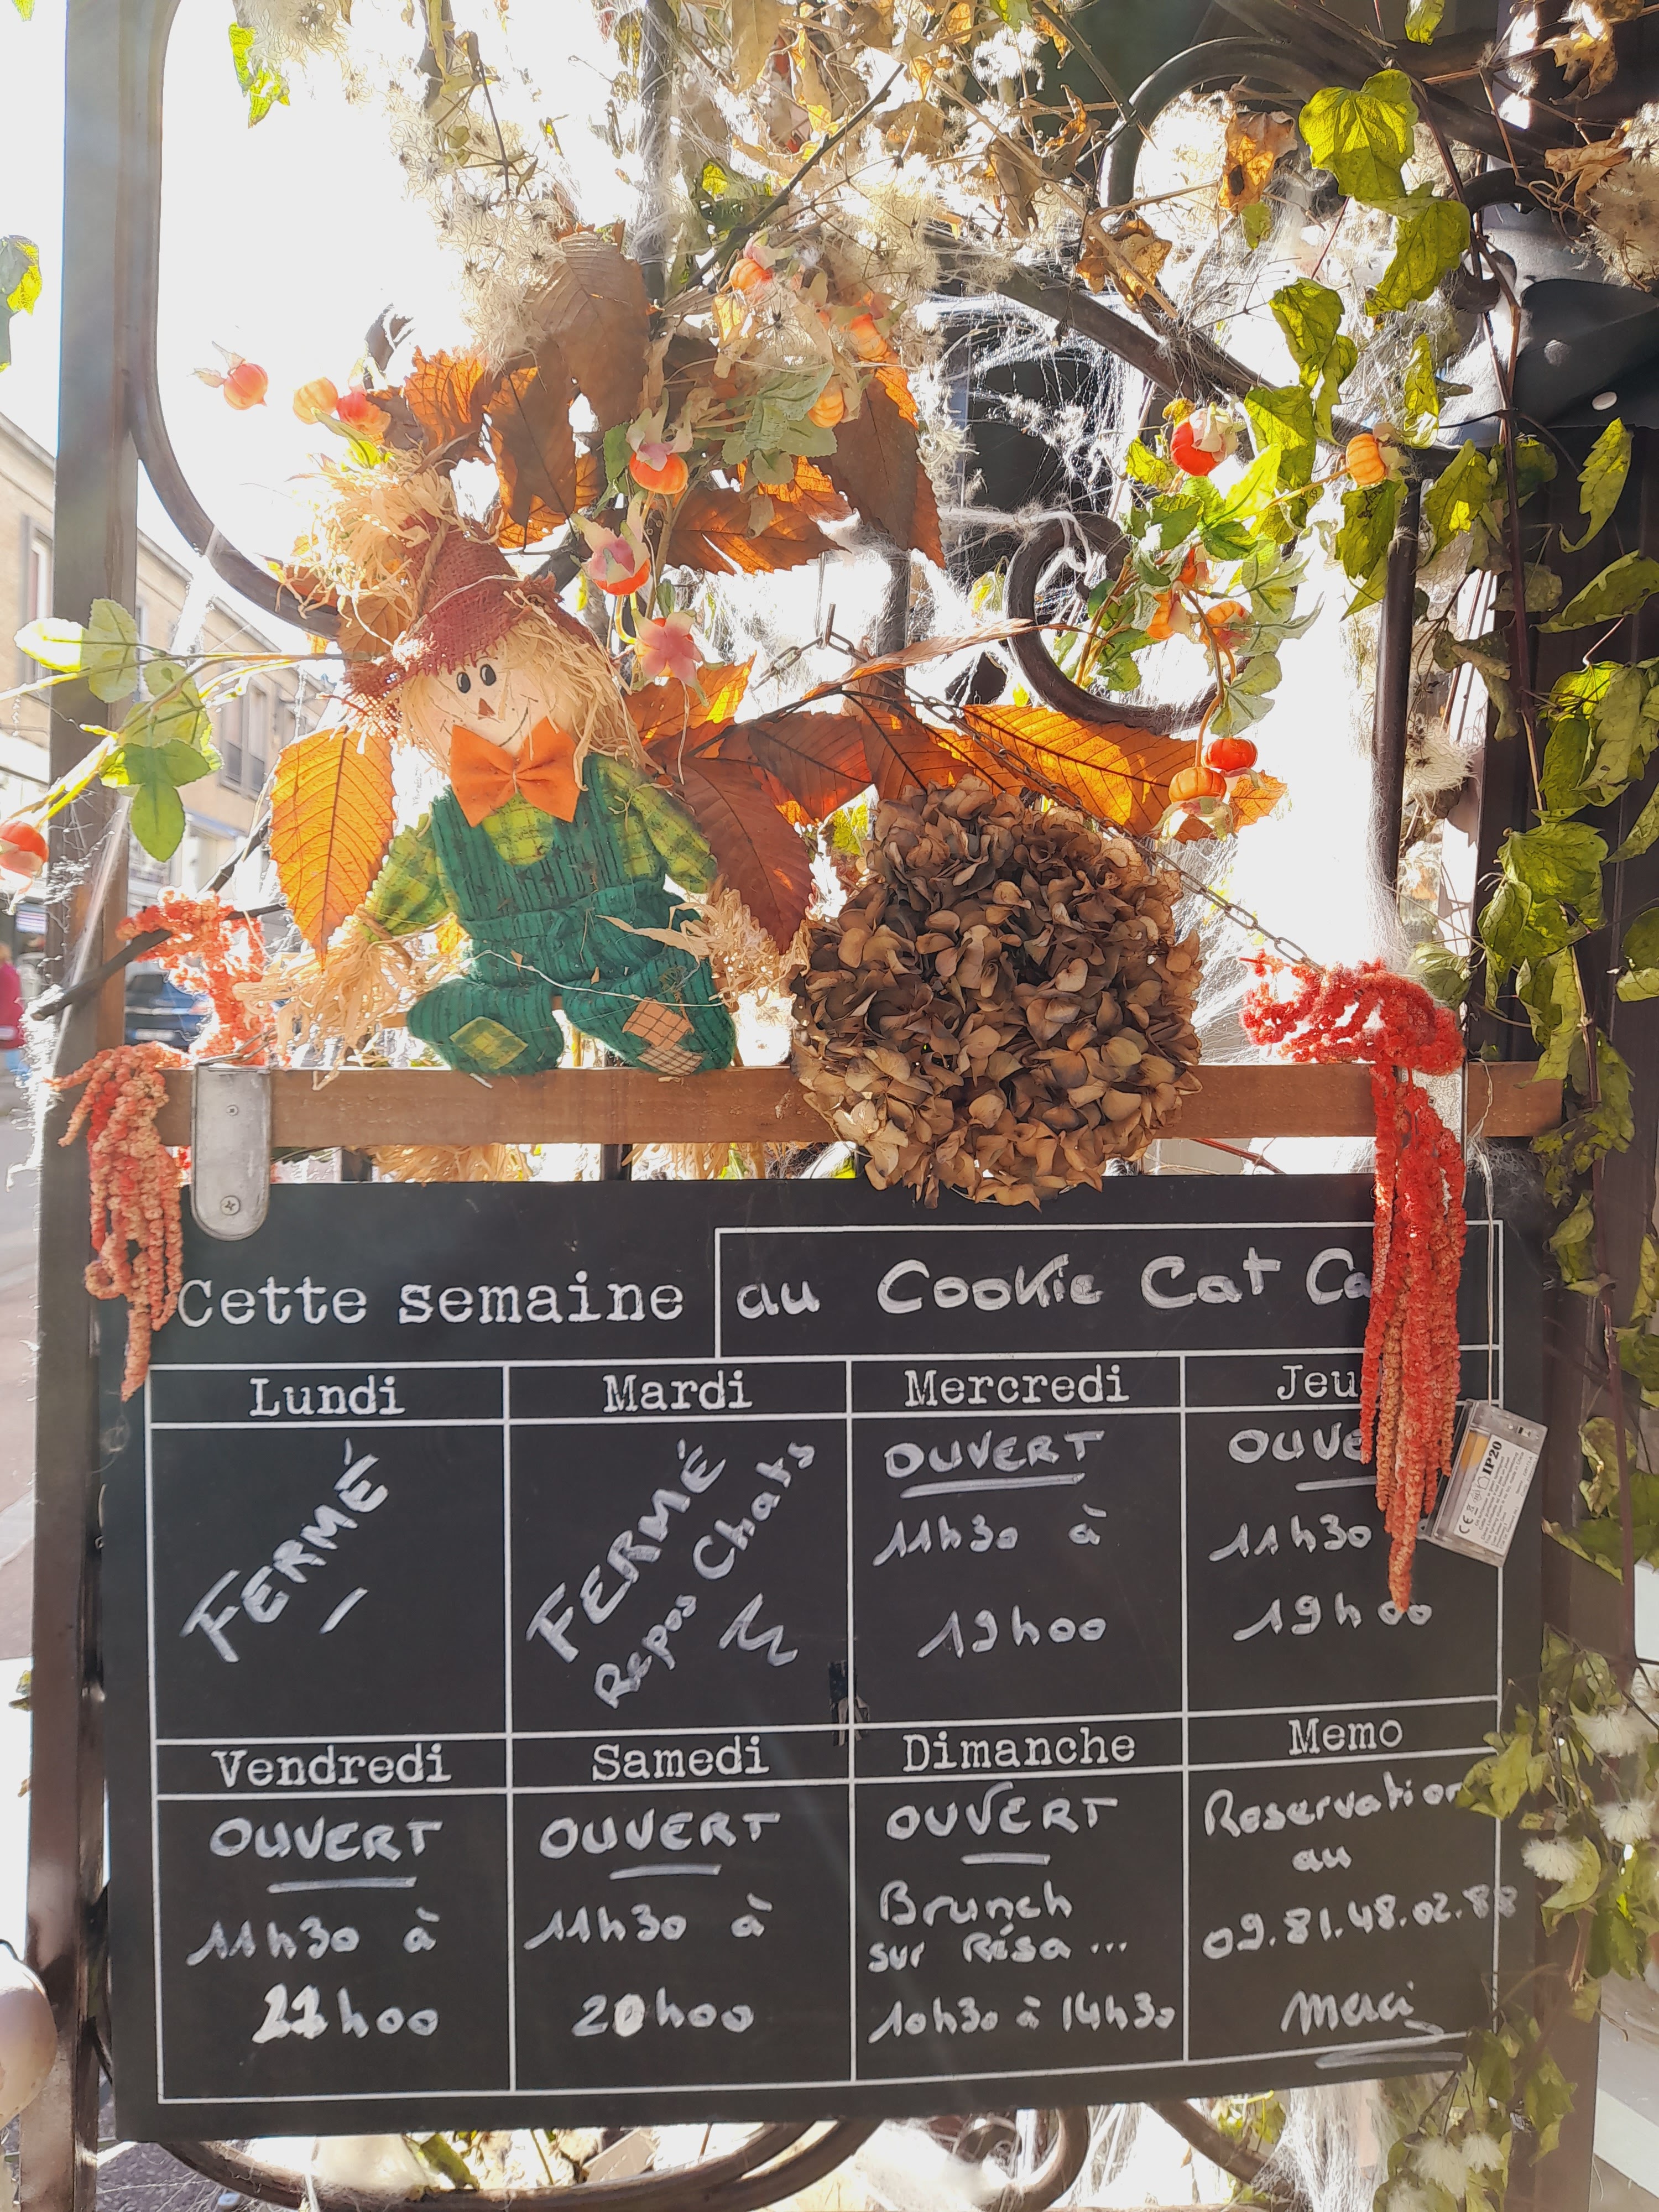 Cette semaine
au Cookie Cat Ca
Lundi
FERMÉ
Mardi
FERMÉ
Repos Chats
Mercredi
OUVERT
11h30 à
19h00
Jeu
OUVE
11h30
19h00
Vendredi
OUVERT
11h30 à
h00
Samedi
OUVERT
11h30 à
20h00
Dimanche
OUVERT
Brunch
sur Résa ...
10h30 à 14h30
Memo
Reservation
au
09.81.48.02.88
Merci
IP20
CE